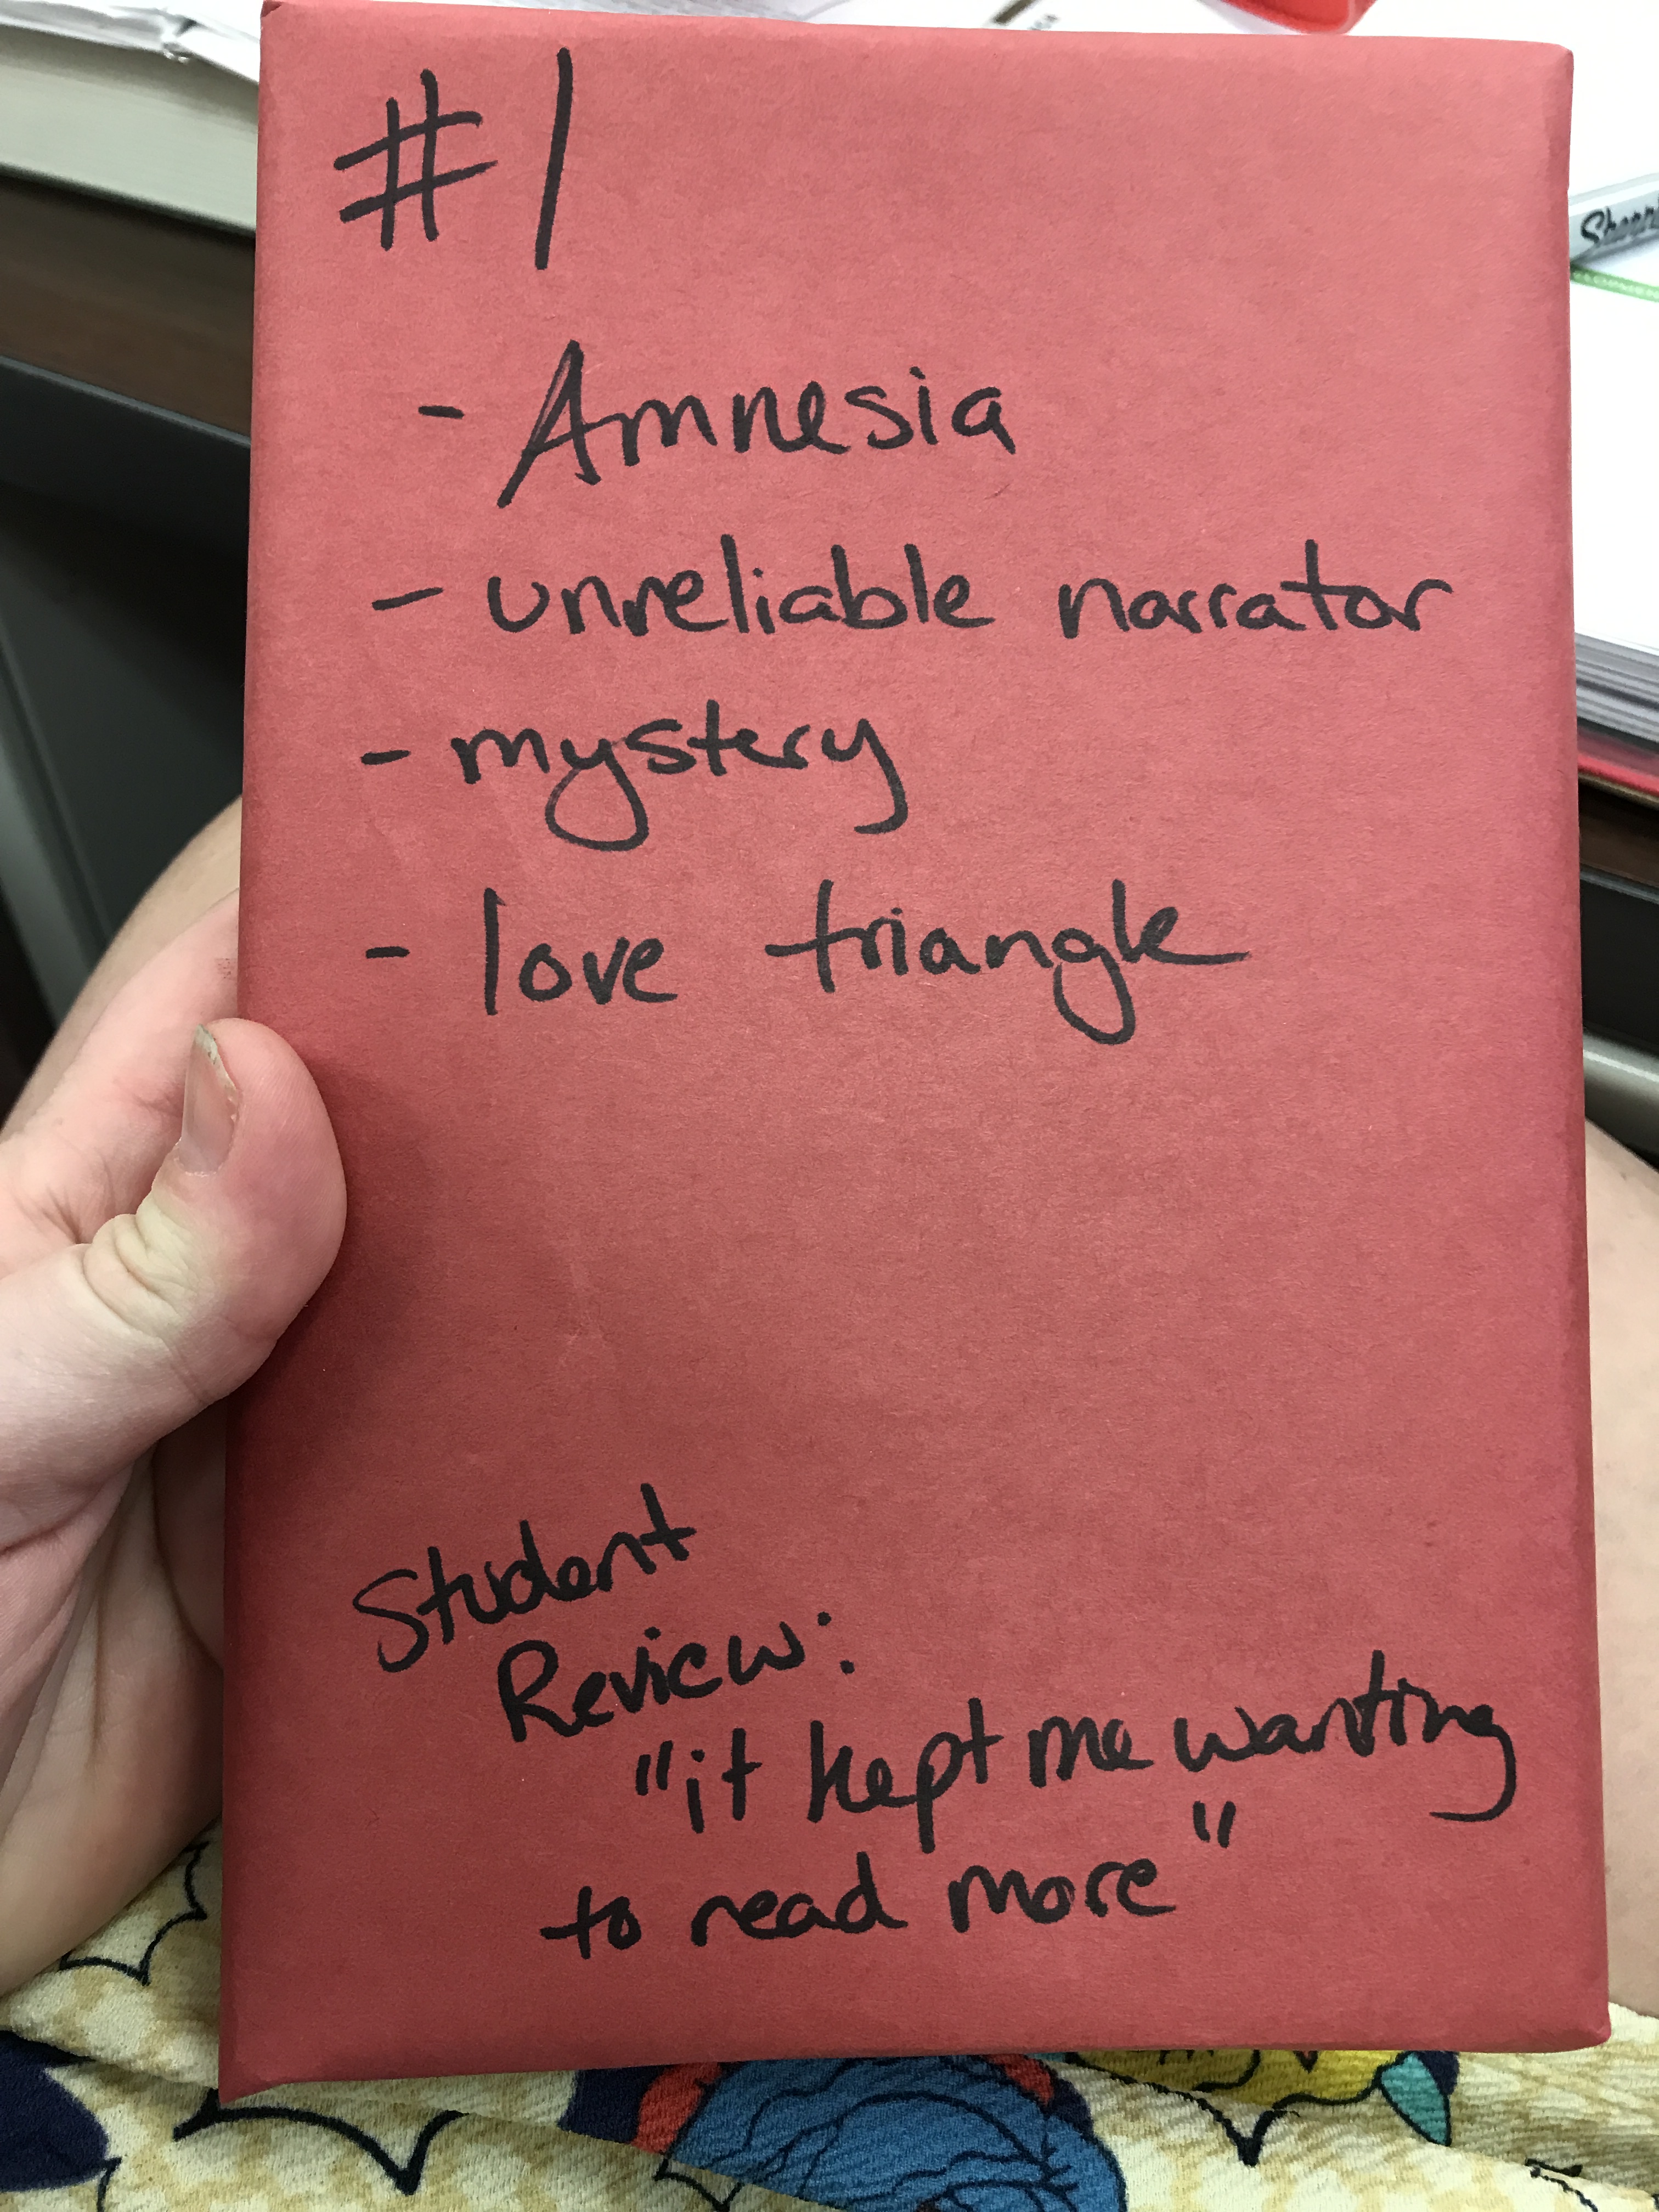 #1
- Amnesia
- unreliable narrator
- mystery
- love triangle
Student
Review:
"it kept me wanting
to read more"